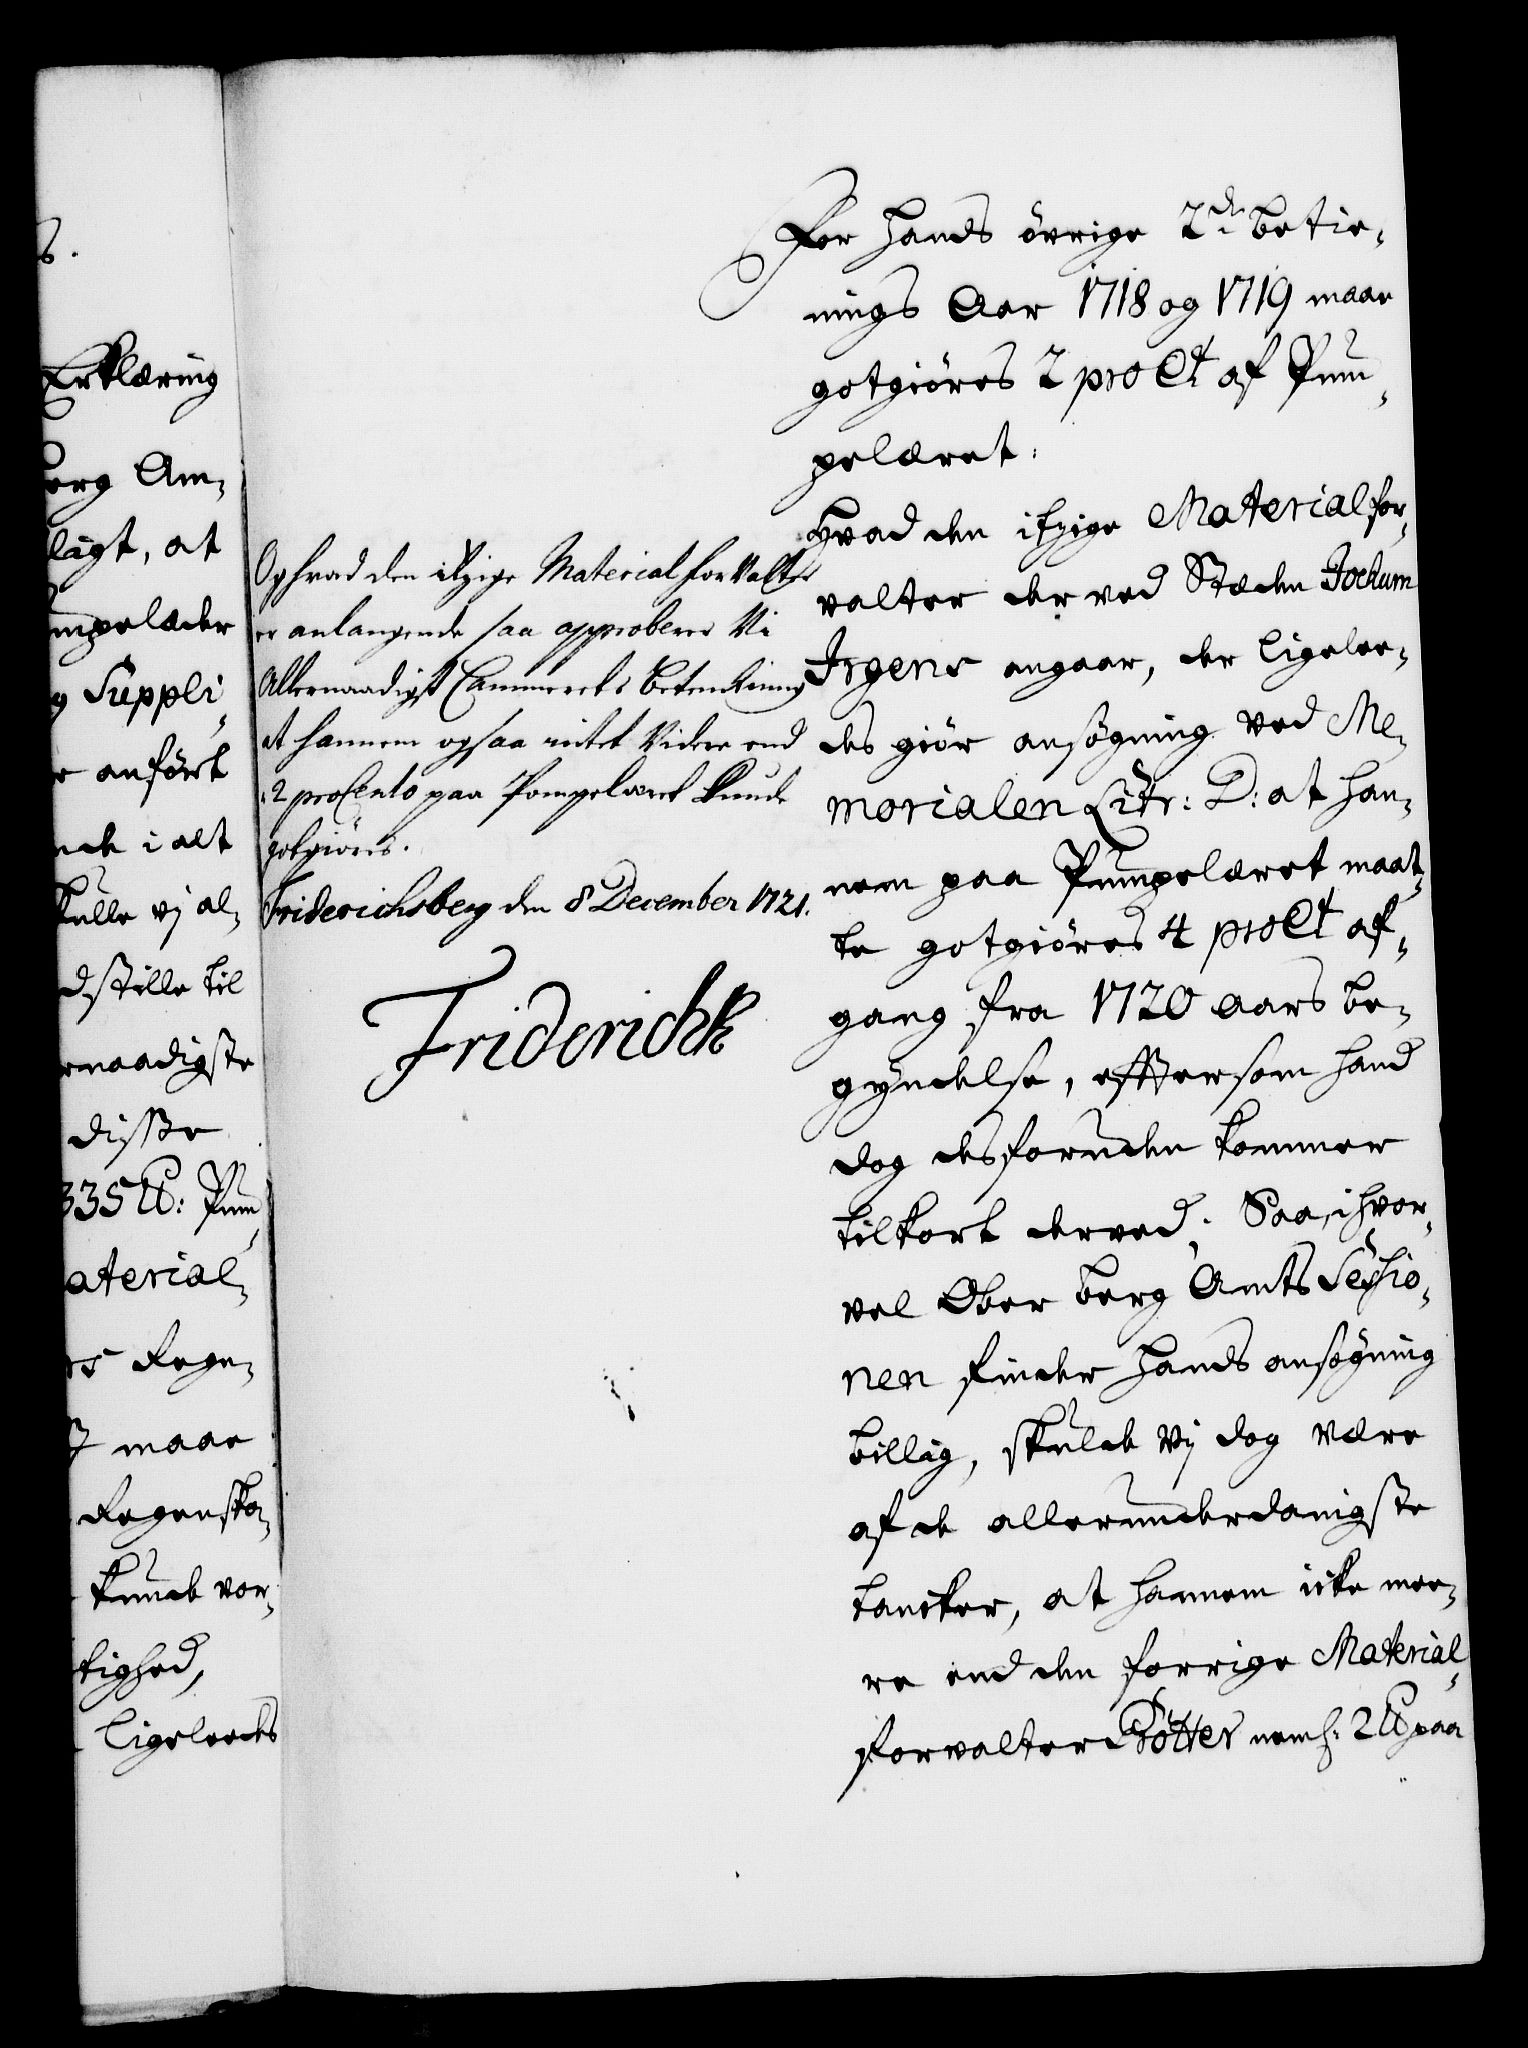 s.
Erklæring
erg Am¬
lägt, at
mpelæder
g Suppli¬
e anført
nde i alt
kulle vj al¬
dstille til
rnaadigste
disse
335 ℔: Pum¬
aterial¬
rs Rege¬
maae
Regenska¬
kunde vor¬
tighed,
ligeleeds
Og hvad den itzige Material forvalter
er anlangende saa approberer Vi
Allernaadigst Cammerets betenkning
at hannem ogsaa intet Videre end
2 proCento paa Pompelæret kunde
gotgiøres.
Friderichsberg den 8 December 1721.
Friderich R
For hands øvrige 2de betie¬
nings Aar 1718 og 1719 maae
gotgiøres 2 pro Ct af Pum¬
pelæret:
Hvad den itzige Materialfor¬
valter der ved Stæden Jochum
Irgens angaar, der ligelee¬
des giør ansøgning ved Me¬
morialen Litr: D: at han¬
nem paa Pumpelæret maat¬
te gotgiøres 4 pro Ct af¬
gang fra 1720 aars be¬
gyndelse, efftersom hand
dog desforuden kommer
tilkort derved; Saa, ihvor¬
vel Ober berg Amts Sessio¬
nen finder hands ansøgning
billig, skulde Vj dog være
af de allerunderdanigste
tancker, at hannem icke mee¬
re end den forrige Material¬
forvalter Bøtter neml: 2 ℔ paa